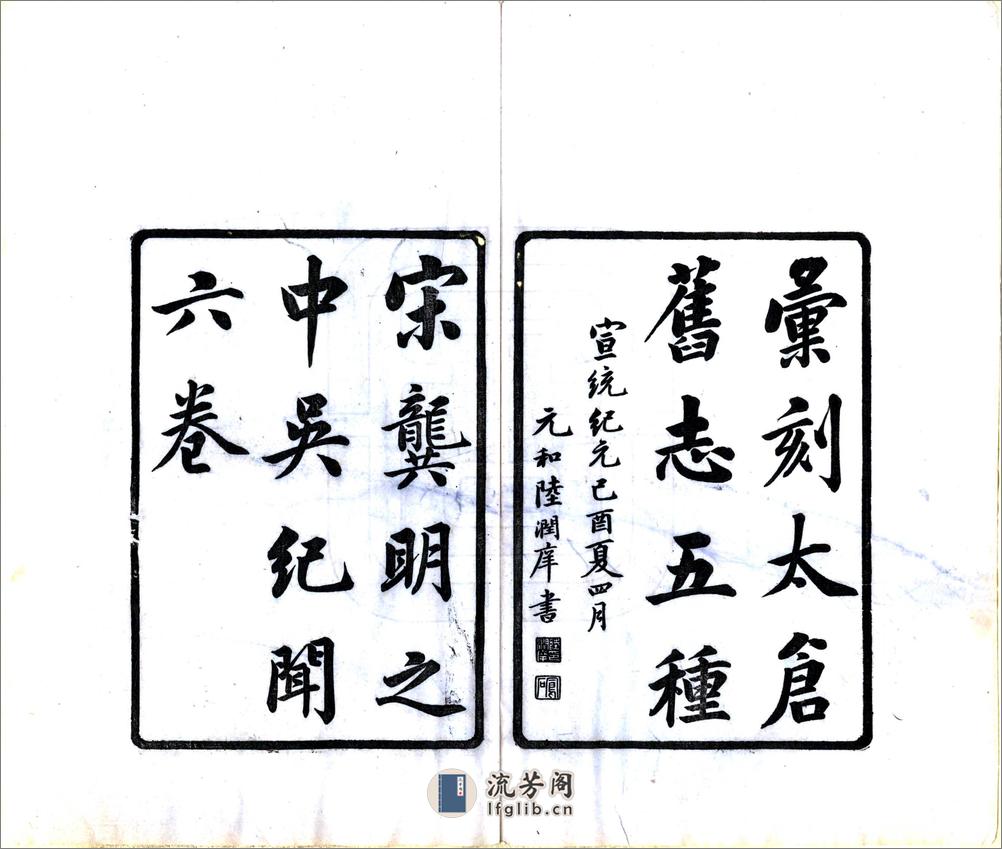 彙刻太倉
舊志五種
宣統紀元己酉夏四月
元和陸潤庠書
宋龔明之
中吳紀聞
六卷
流芳阁
lfglib.cn